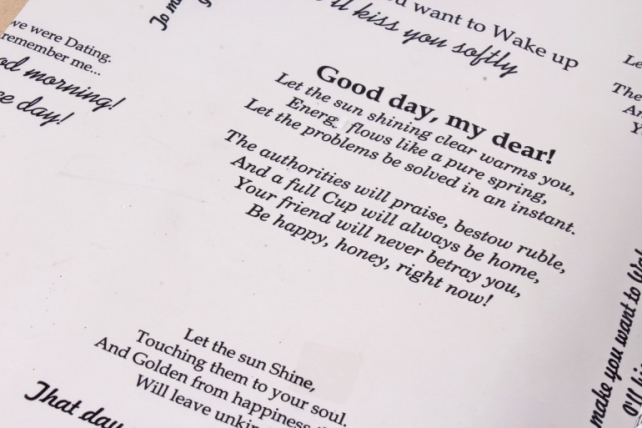 want to Wake up
I'll kiss you softly
we were Dating.
remember me...
good morning!
day!
Good day, my dear!
Let the sun shining clear warms you,
Energ flows like a pure spring,
Let the problems be solved in an instant.
The authorities will praise, bestow ruble,
And a full Cup will always be home,
Your friend will never betray you,
Be happy, honey, right now!
Let the sun Shine,
Touching them to your soul.
And Golden from happiness
Will leave
That day
make you want to
I'll